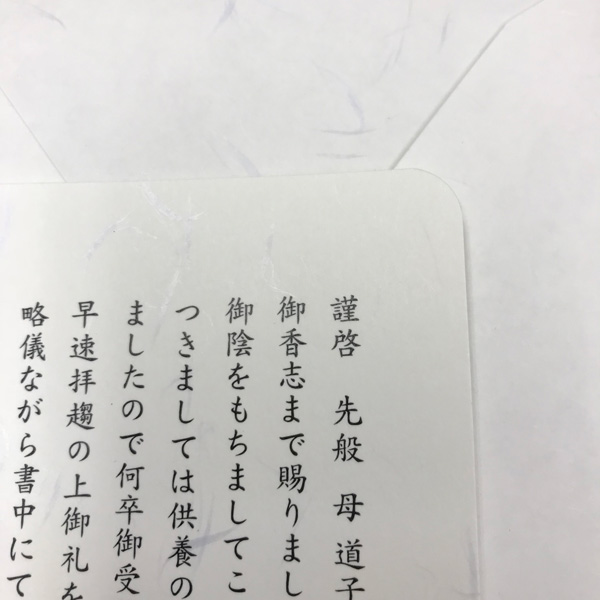 謹啓 先般 母 道子
御香志まで賜りまし
御陰をもちましてこ
つきましては供養の
ましたので何卒御受
早速拝趨の上御礼を
略儀ながら書中にて